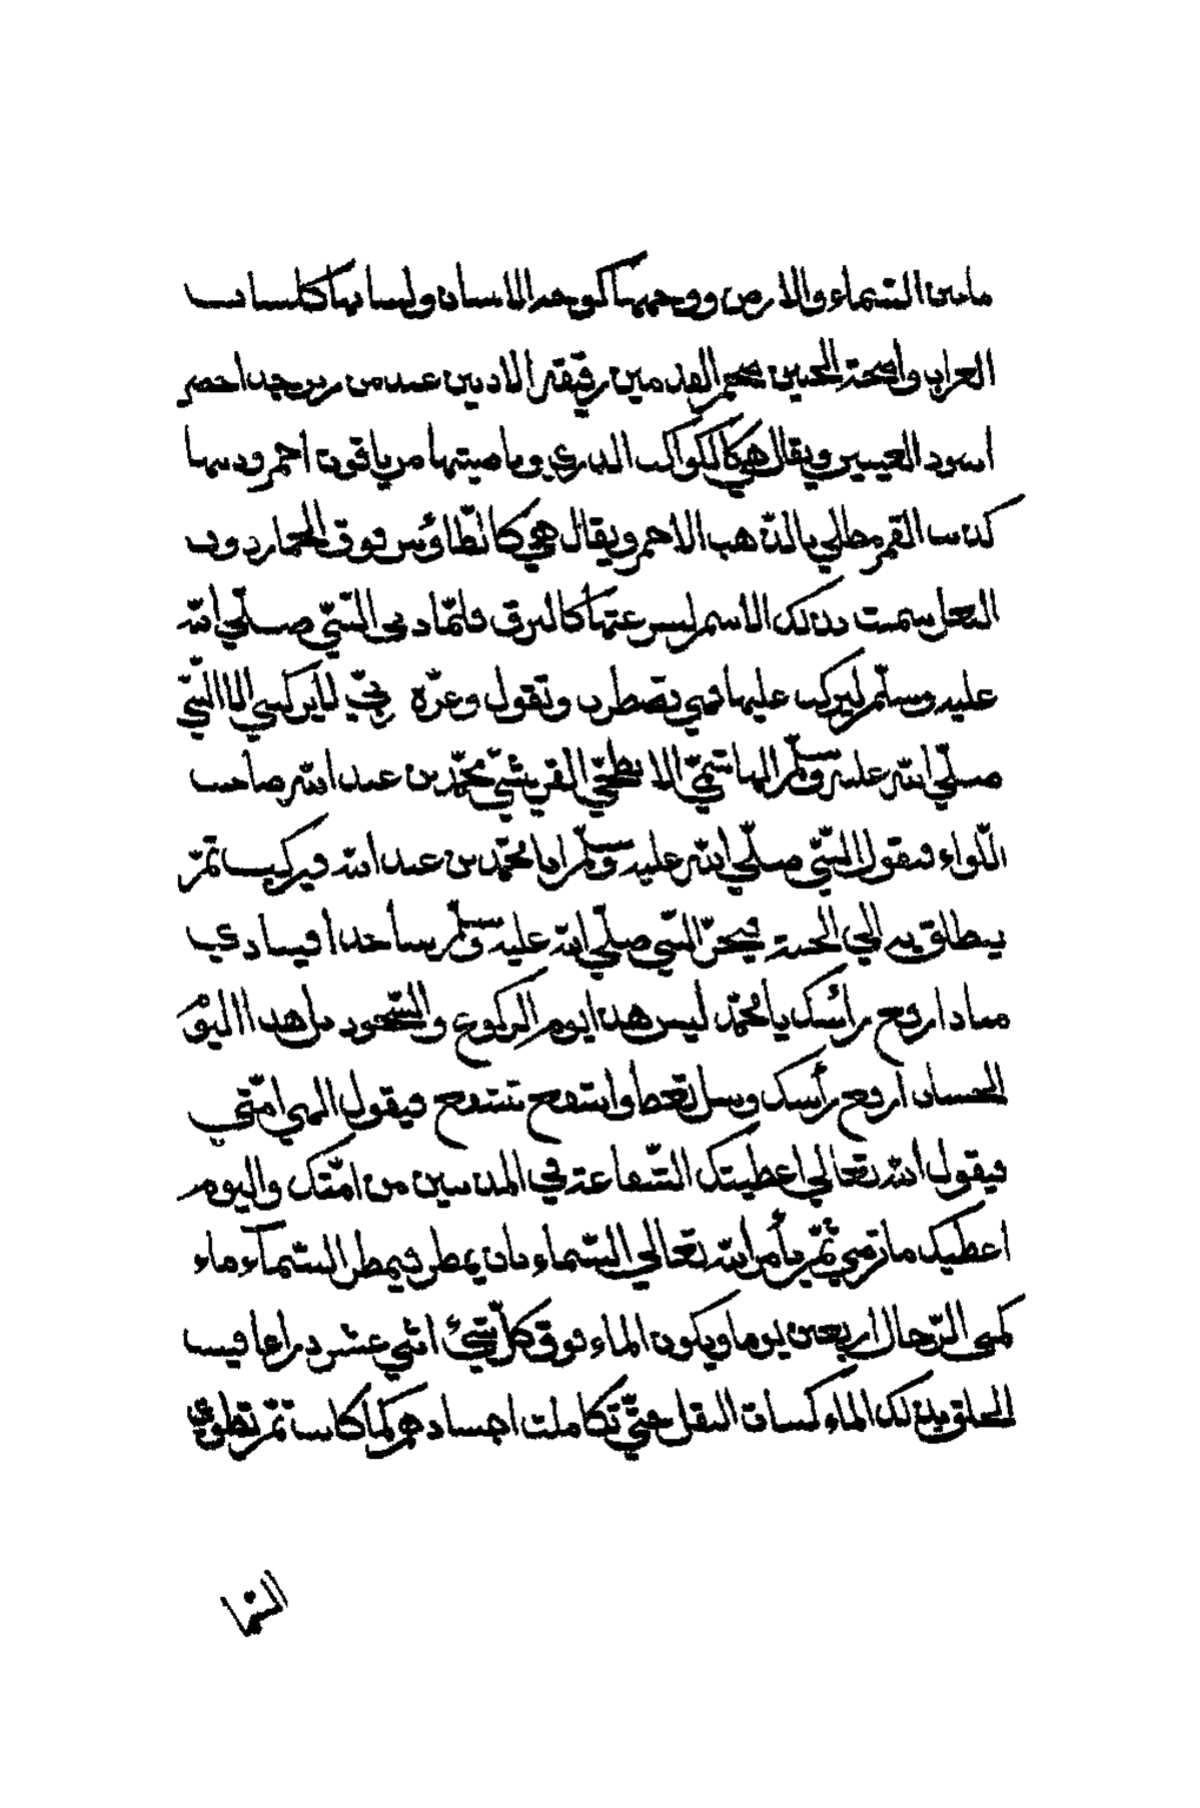 مابين السّماء والارض ووجهها كوجه الانسان ولسانها كلسان
العراب واضحة الجبين ضخم القدمين رقيقة الاذنين عنده من زبرجد اخضر
اسود العينين ويقال هي كالكواكب الدري وناصيتها من ياقوت احمر وذنبها
كذنب القمر مطلي بالذّهب الاحمر ويقال هي كالطّاؤس فوق الحمار دون
البغل سميت بذلك الاسم ليسرعتها كالبرق فلمّا دنى النبيّ صلّي الله
عليه وسلّم ليركب عليها فهي تضطرب وتقول وعزّة ربّي لا يركبني الا النبيّ
صلّي الله عليه وسلّم الهاشميّ الابطحيّ القريشيّ محمّد بن عبد الله صاحب
اللّواء فيقول النبّي صلّي الله عليه وسلّم انا محمّد بن عبد الله فيركب ثمّ
ينطلق به الي الجنة فيخرّ النبّي صلّي الله عليه وسلّم ساجدا فينادي
مناد ارفع رأسك يا محمّد ليس هذا يوم الركوع والسّجود بل هذا اليوم
الحساب ارفع رأسك وسل تعط واشفع تشفع فيقول الهي امّتي
فيقول الله تعالي اعطيتك الشّفاعة في المذنبين من امّتك واليوم
اعطيك ما ترضي ثمّ يأمر الله تعالي السّماء بان يمطر فيمطر السّمآء ماء
كمنى الرّجال اربعين يوما ويكون الماء فوق كلّ شيئ اثني عشر ذراعا فينبت
الخلق بذلك الماء كنبات البقل حتّي تكاملت اجسادهم كما كانت ثمّ تطوي
السّما